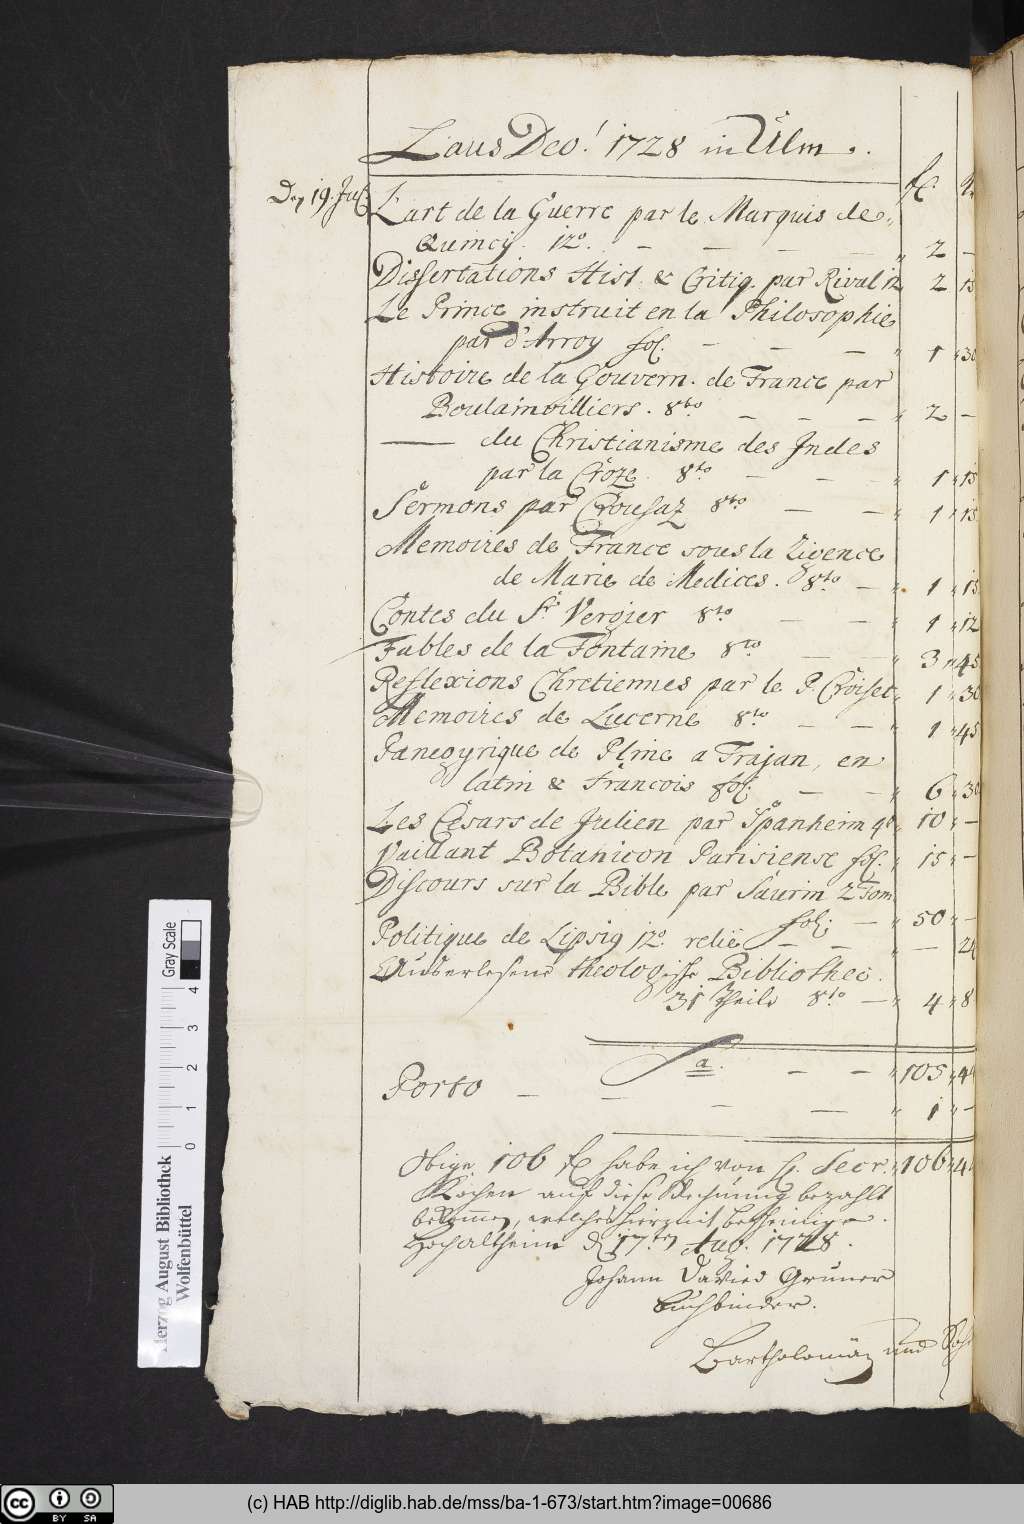 Laus Deo! 1728 in Ulm.
fl.
19. Jul.
L'art de la Guerre par le Marquis de
Quincy. 12°. — — — „ 2 —
Dissertations Hist. & Critiq. par Rival 12 2 „ 15
Le Prince instruit en la Philosophie
par d'Arroy fol. — — — „ 1 „ 30
Histoire de la Gouvern. de France par
Boulainvilliers. 8vo. — — — „ 2 „ —
—— du Christianisme des Indes
par la Croze. 8vo — — — „ 1 „ 15
Sermons par Crousaz 8vo. — — „ 1 „ 15
Memoires de France sous la Rigence
de Marie de Medices. 8vo. — „ 1 „ 15
Contes du Sr. Vergier 8vo — — „ 1 „ 12
Fables de la Fontaine 8vo — — „ 3 „ 45
Reflexions Chretiennes par le P. Croiset „ 1 „ 30
Memoires de Lucerne 8vo — — „ 1 „ 45
Panegyrique de Pline a Trajan, en
latin & Francois fol. — — „ 6 „ 30
Les Césars de Julien par Spanheim 4to „ 10 „ —
Vaillant Botanicon Parisiense fol. „ 15 „ —
Discours sur la Bible par Saurin 2 Tom
fol. — „ 50 „ —
Politique de Lipsig 12°. relié — — „ — 24
Auserlesene theologische Bibliothec.
31 Theile 8vo — „ 4 „ 8
Sa. — — „ 105 „ 44
Porto — — — — „ 1 „ —
Obige 106 fl habe ich von H. Secr. „ 106 „ 44
Kochen auf diese Rechnung bezahlt
bekommen, welches hiermit bescheinige.
Hochaltheim d 17ten Aug. 1728.
Johann David Gruner
Buchbinder.
Bartholomäi und Sohn
Gray Scale
0 1 2 3 4
Herzog August Bibliothek
Wolfenbüttel
cc BY SA
(c) HAB http://diglib.hab.de/mss/ba-1-673/start.htm?image=00686